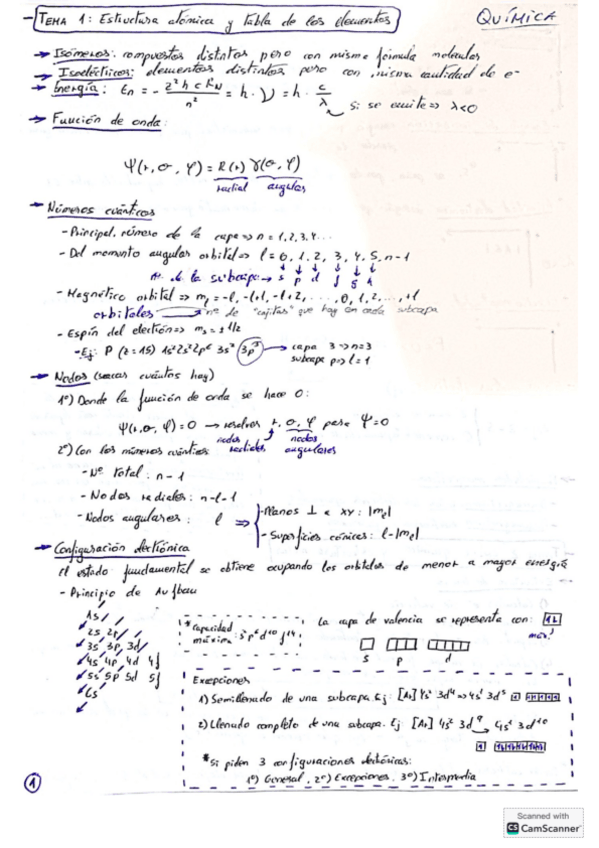 - TEMA 1: Estructura atómica y tabla de los elementos
QUÍMICA
→ Isómeros: compuestos distintos pero con misma fórmula molecular
→ Isoeléctricos: elementos distintos pero con misma cantidad de e-
→ Energía: En = - Z² h c RN / n² = h · ν = h · c / λ
Si se emite ⇒ λ<0
→ Función de onda:
Ψ(r, σ, φ) = R(r) Y(σ, φ)
radial angular
→ Números cuánticos
- Principal, número de la capa ⇒ n = 1, 2, 3, 4...
- Del momento angular orbital ⇒ l = 0, 1, 2, 3, 4, 5, n-1
de la subcapa → s p d f g h
- Magnético orbital ⇒ ml = -l, -l+1, -l+2, ..., 0, 1, 2, ..., +l
orbitales → nº de "cajitas" que hay en cada subcapa
- Espín del electrón ⇒ ms = ± 1/2
- Ej: P (z=15) 1s² 2s² 2p⁶ 3s² 3p³ → capa 3 ⇒ n=3
subcapa p ⇒ l=1
→ Nodos (sacar cuántos hay)
1º) Donde la función de onda se hace 0:
Ψ(r, σ, φ) = 0 → resolver r, σ, φ para Ψ=0
nodos radiales nodos angulares
2º) Con los números cuánticos
- Nº total: n - 1
- Nodos radiales: n-l-1
- Nodos angulares: l ⇒
- Planos ⊥ a XY: |ml|
- Superficies cónicas: l-|ml|
→ Configuración electrónica
El estado fundamental se obtiene ocupando los orbitales de menor a mayor energía
- Principio de Aufbau
1s
2s 2p
3s 3p 3d
4s 4p 4d 4f
5s 5p 5d 5f
6s
* Capacidad máxima: s² p⁶ d¹⁰ f¹⁴
La capa de valencia se representa con: 1L
máx!
s p d
Excepciones
1) Semillenado de una subcapa. Ej: [Ar] 4s² 3d⁴ ⇒ 4s¹ 3d⁵
2) Llenado completo de una subcapa. Ej [Ar] 4s² 3d⁹ → 4s¹ 3d¹⁰
* Si piden 3 configuraciones electrónicas:
1º) General, 2º) Excepciones, 3º) Intermedia
1
Scanned with
CS CamScanner